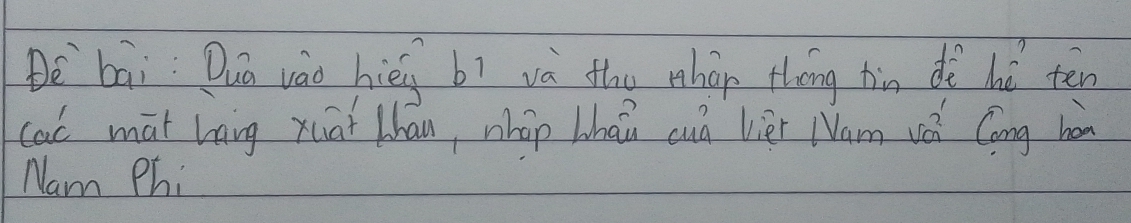 Đề bài: Dựa vào hiểu b1 và thu nhập thông tin để kể tên
các mặt hàng xuất khẩu, nhập khẩu của Việt Nam với Cộng hoà
Nam Phi